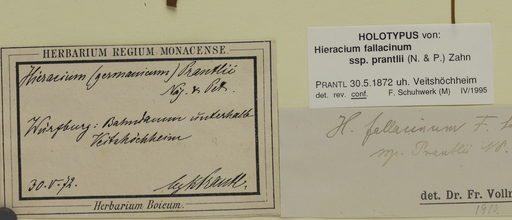 HERBARIUM REGIUM MONACENSE.
Hieracium (germanicum) Prantlii
Näg. & Pet.
Würzburg: Bahndamm unterhalb
Veitshöchheim
30.V.72.
Herbarium Boicum.
HOLOTYPUS von:
Hieracium fallacinum
ssp. prantlii (N. & P.) Zahn
PRANTL 30.5.1872 uh. Veitshöchheim
det. rev. conf. F. Schuhwerk (M) IV/1995
H. fallacinum F.
ssp. Prantlii NP.
det. Dr. Fr. Vollm